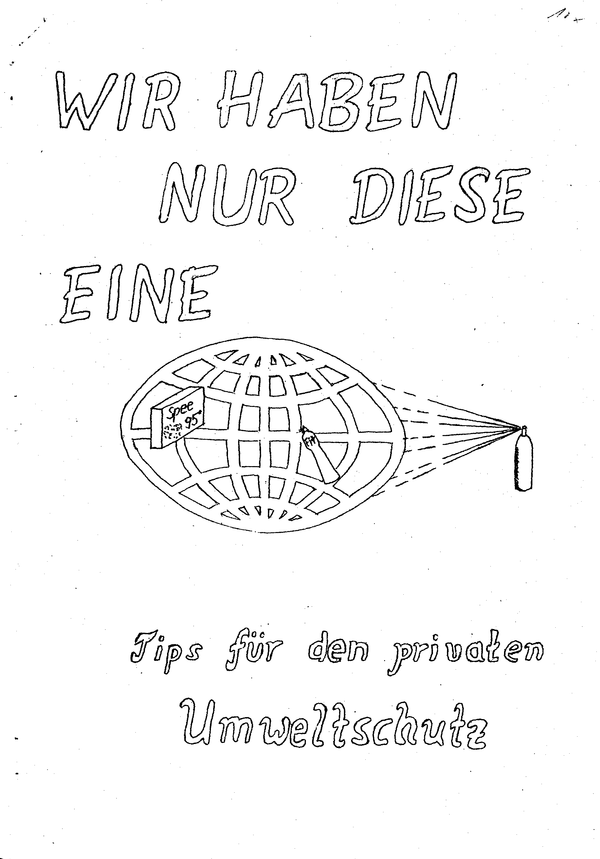 WIR HABEN
NUR DIESE
EINE
Spee
95°
Fit
Tips für den privaten
Umweltschutz